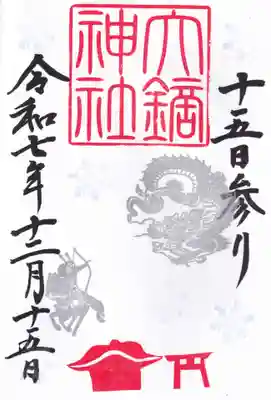 十五日参り
六鏑
神社
令和七年十二月十五日